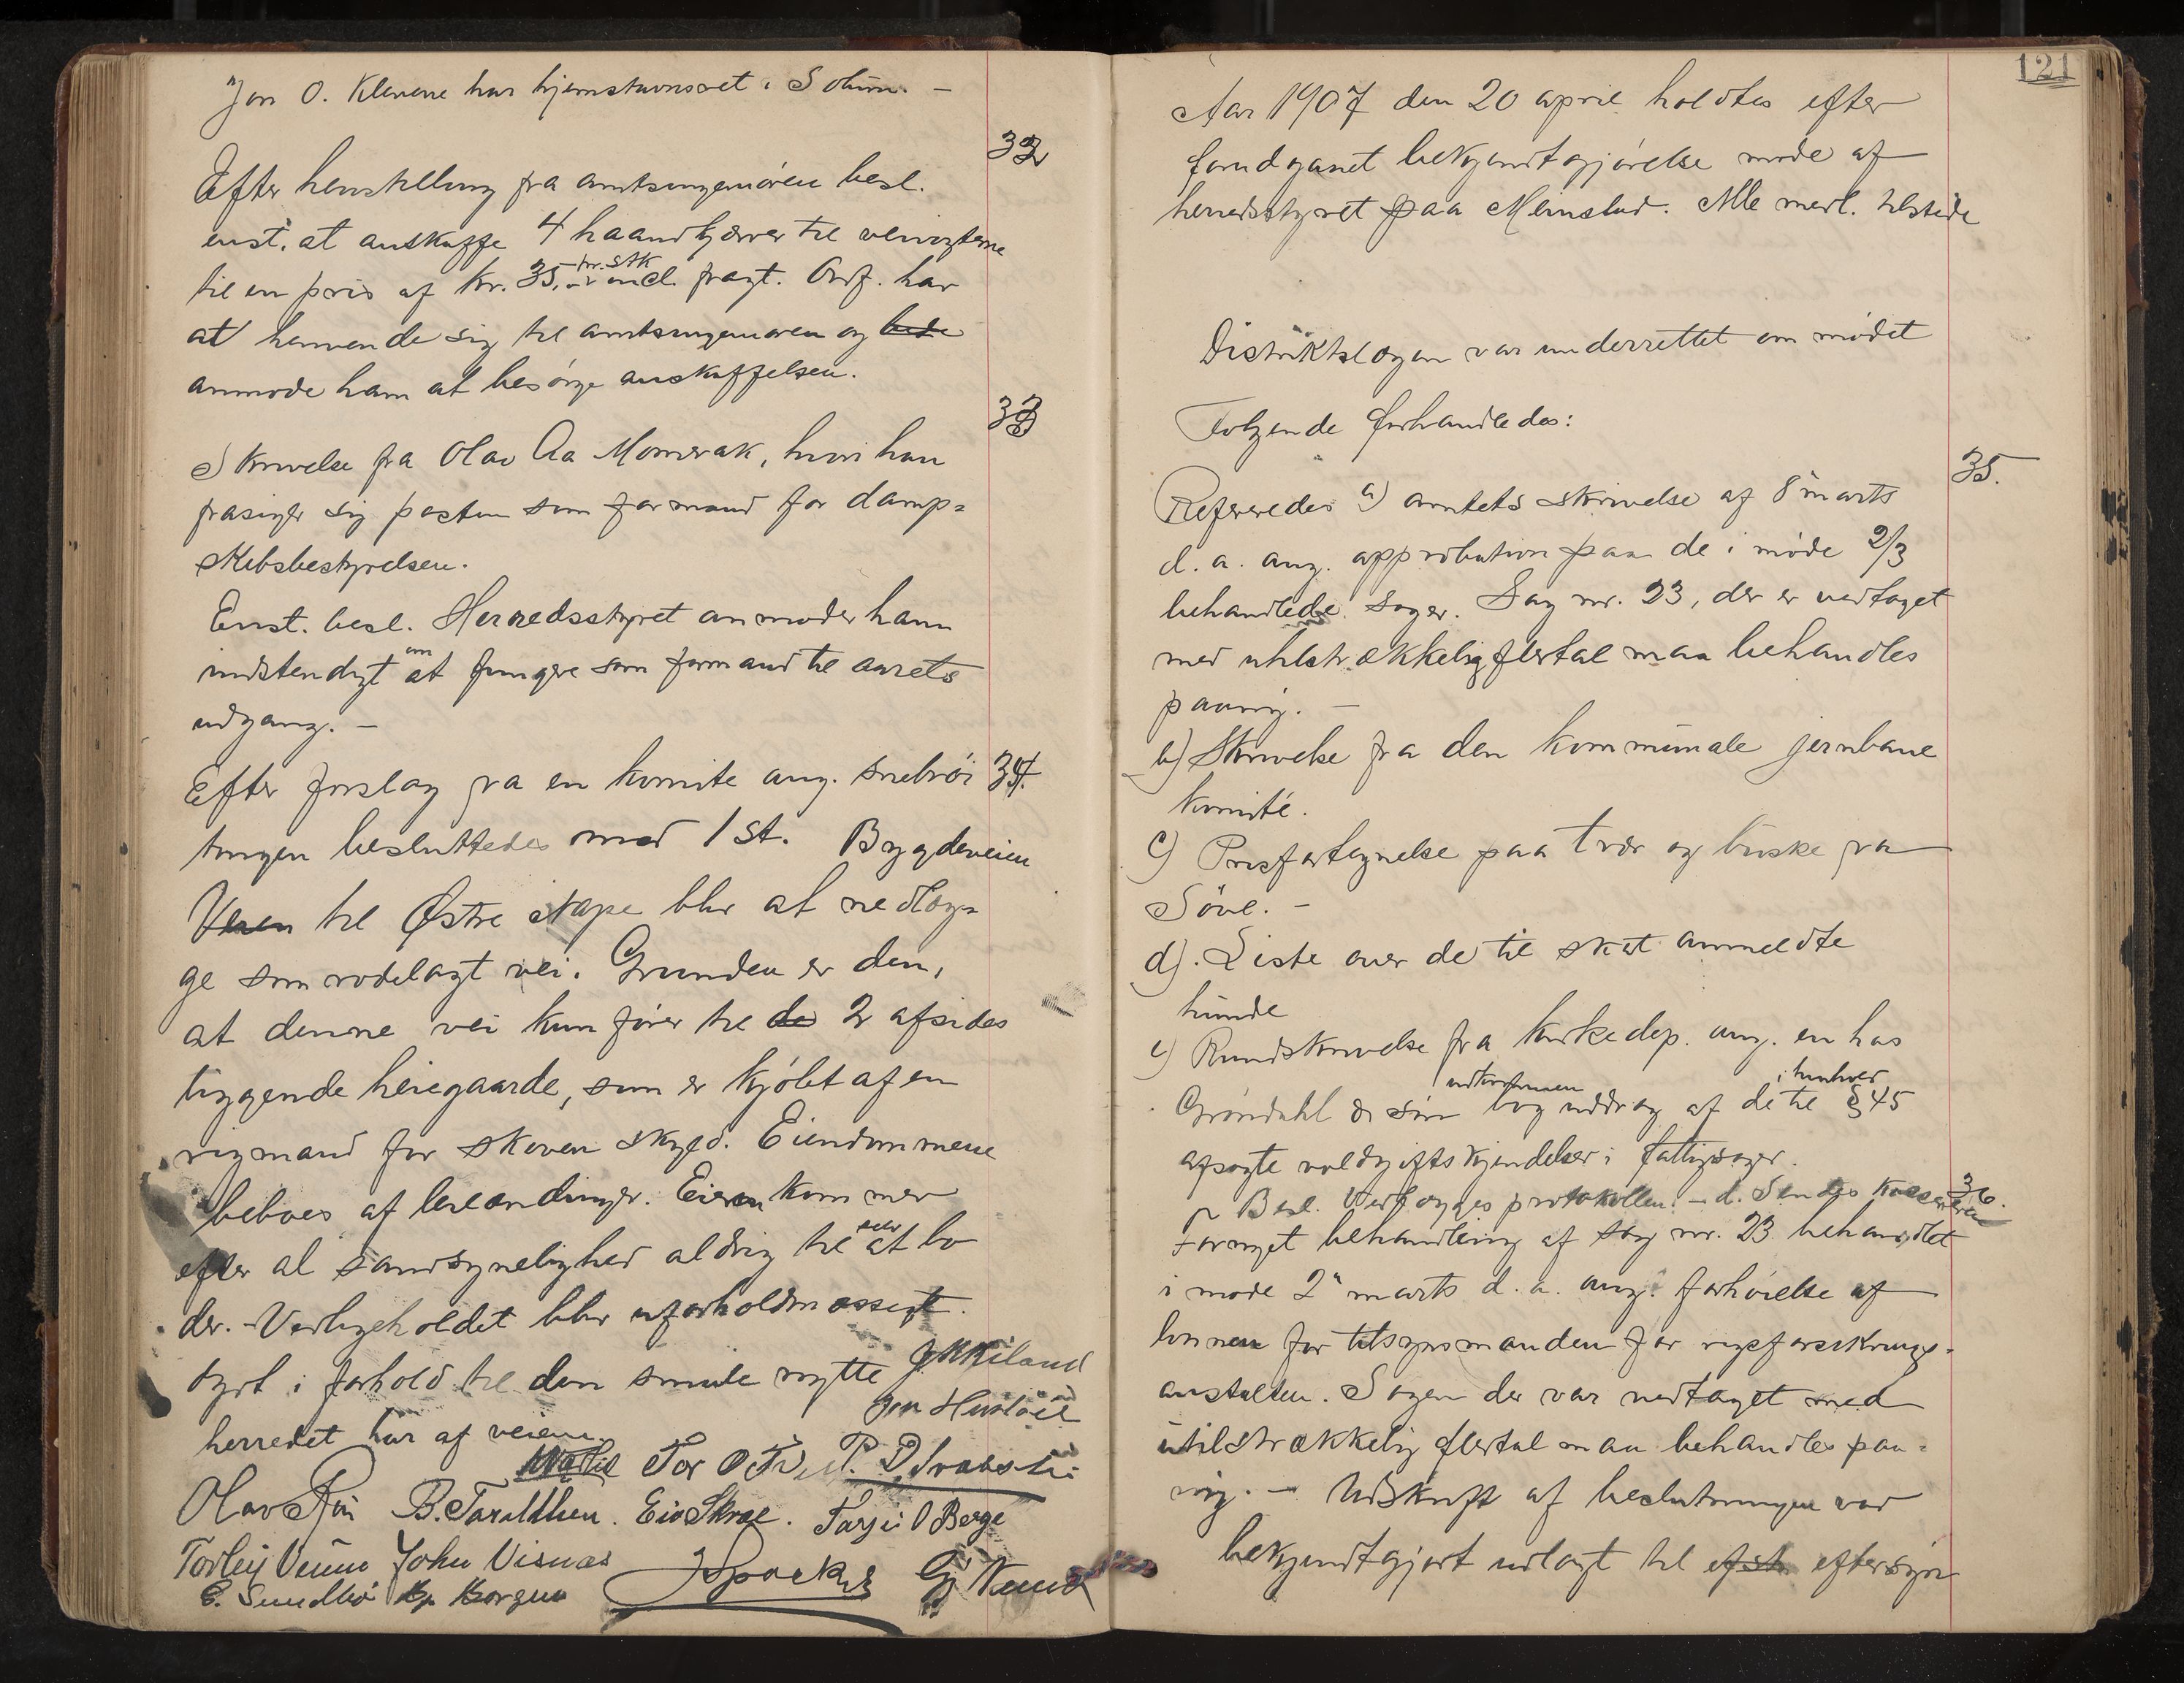 "Jon O. Klevene har hjemstavnsret i Solum. –
32
Efter henstilling fra amtsingeniøren besl.
enst. at anskaffe 4 haandkjærrer til veivogterne
til en pris af kr. 35.- pr. stk incl. fragt. Ordf. har
at henvende sig til amtsingeniøren og bede
anmode ham at besørge anskaffelsen.
33
Skrivelse fra Olav Aa Momrak, hvori han
frasiger sig posten som formand for damp=
skibsbestyrelsen.
Enst. besl. Herredsstyret anmoder ham
indstendigt om at fungere som formand til aarets
udgang. –
Efter forslag fra en komite ang. snebrøi 34.
tningen besluttedes mod 1 st. Bygdeveien
Veien til Østre Nape blir at nedlæg=
ge som rodelagt vei. Grunden er den,
at denne vei kun fører til de 2 afsides
liggende heiegaarde, som er kjøbt af en
rigmand for skoven skyld. Eiendommene
beboes af leilændinger. Eieren kommer
efter al sandsynelighed aldrig til selv at bo
der. – Vedligeholdet blir uforholdmæssigt
dyrt i forhold til den smule nytte
herredet har af veien.
Olav B. Taraldlien. Eiv Skrae. Tarjei O Berge
Torleiv John Visnaas
Aar 1907 den 20 april holdtes efter 121
forudgaaet bekjendtgjørelse møde af
herredsstyret paa Meinstad. Alle medl. tilstede
Distriktslægen var underrettet om mødet
Følgende forhandledes:
35.
Refereredes a) amtets skrivelse af 8 marts
d. a. ang. approbation paa de i møde 2/3
behandlede sager. Sag nr. 23, der er vedtaget
med utilstrækkelig flertal maa behandles
paany. –
b) Skrivelse fra den kommunale jernbane
komité.
c) Prisfortegnelse paa trær og buske fra
Söve. –
d). Liste over de til skat anmeldte
hunde
e) Rundskrivelse fra kirkedep. ang. en hos
Grøndahl & søn udkommen bog uddrag af de i henhold til § 45
afsagte voldgiftskjendelser i fattigsager.
Besl. Vedlægges protokollen. – d. Sendes kassereren
36.
Fornyet behandling af sag nr. 23 behandlet
i møde 2" marts d. a. ang. forhøielse af
lønnen for tilsynsmanden for rigsforsikrings=
anstalten. Sagen der var vedtaget med
utilstrækkelig flertal maa behandles paa=
ny. – Udskrift af beslutningen var
bekjendtgjort udlagt til efst eftersyn